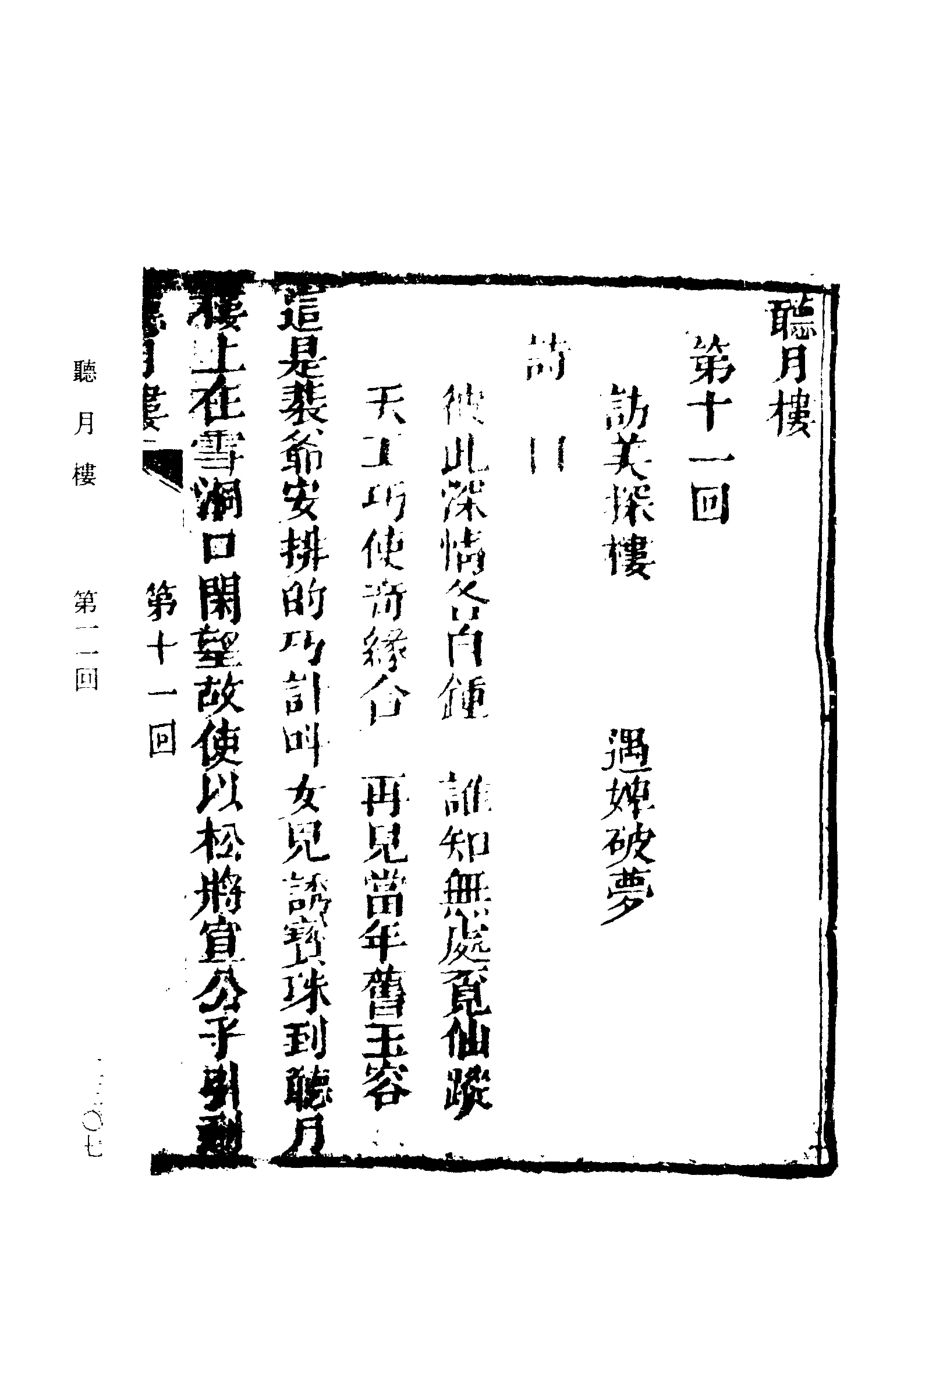 聽月樓
第十一回
訪美探樓　遇婢破夢
詩曰
彼此深情各自鍾　誰知無處覓仙蹤
天工巧使奇緣合　再見當年舊玉容
這是裴爺安排的巧計叫女兒誘寶珠到聽月
樓上在雪洞口閑望故使以松將宣公子引到
聽月樓
第十一回
聽月樓　第一一回
〇七